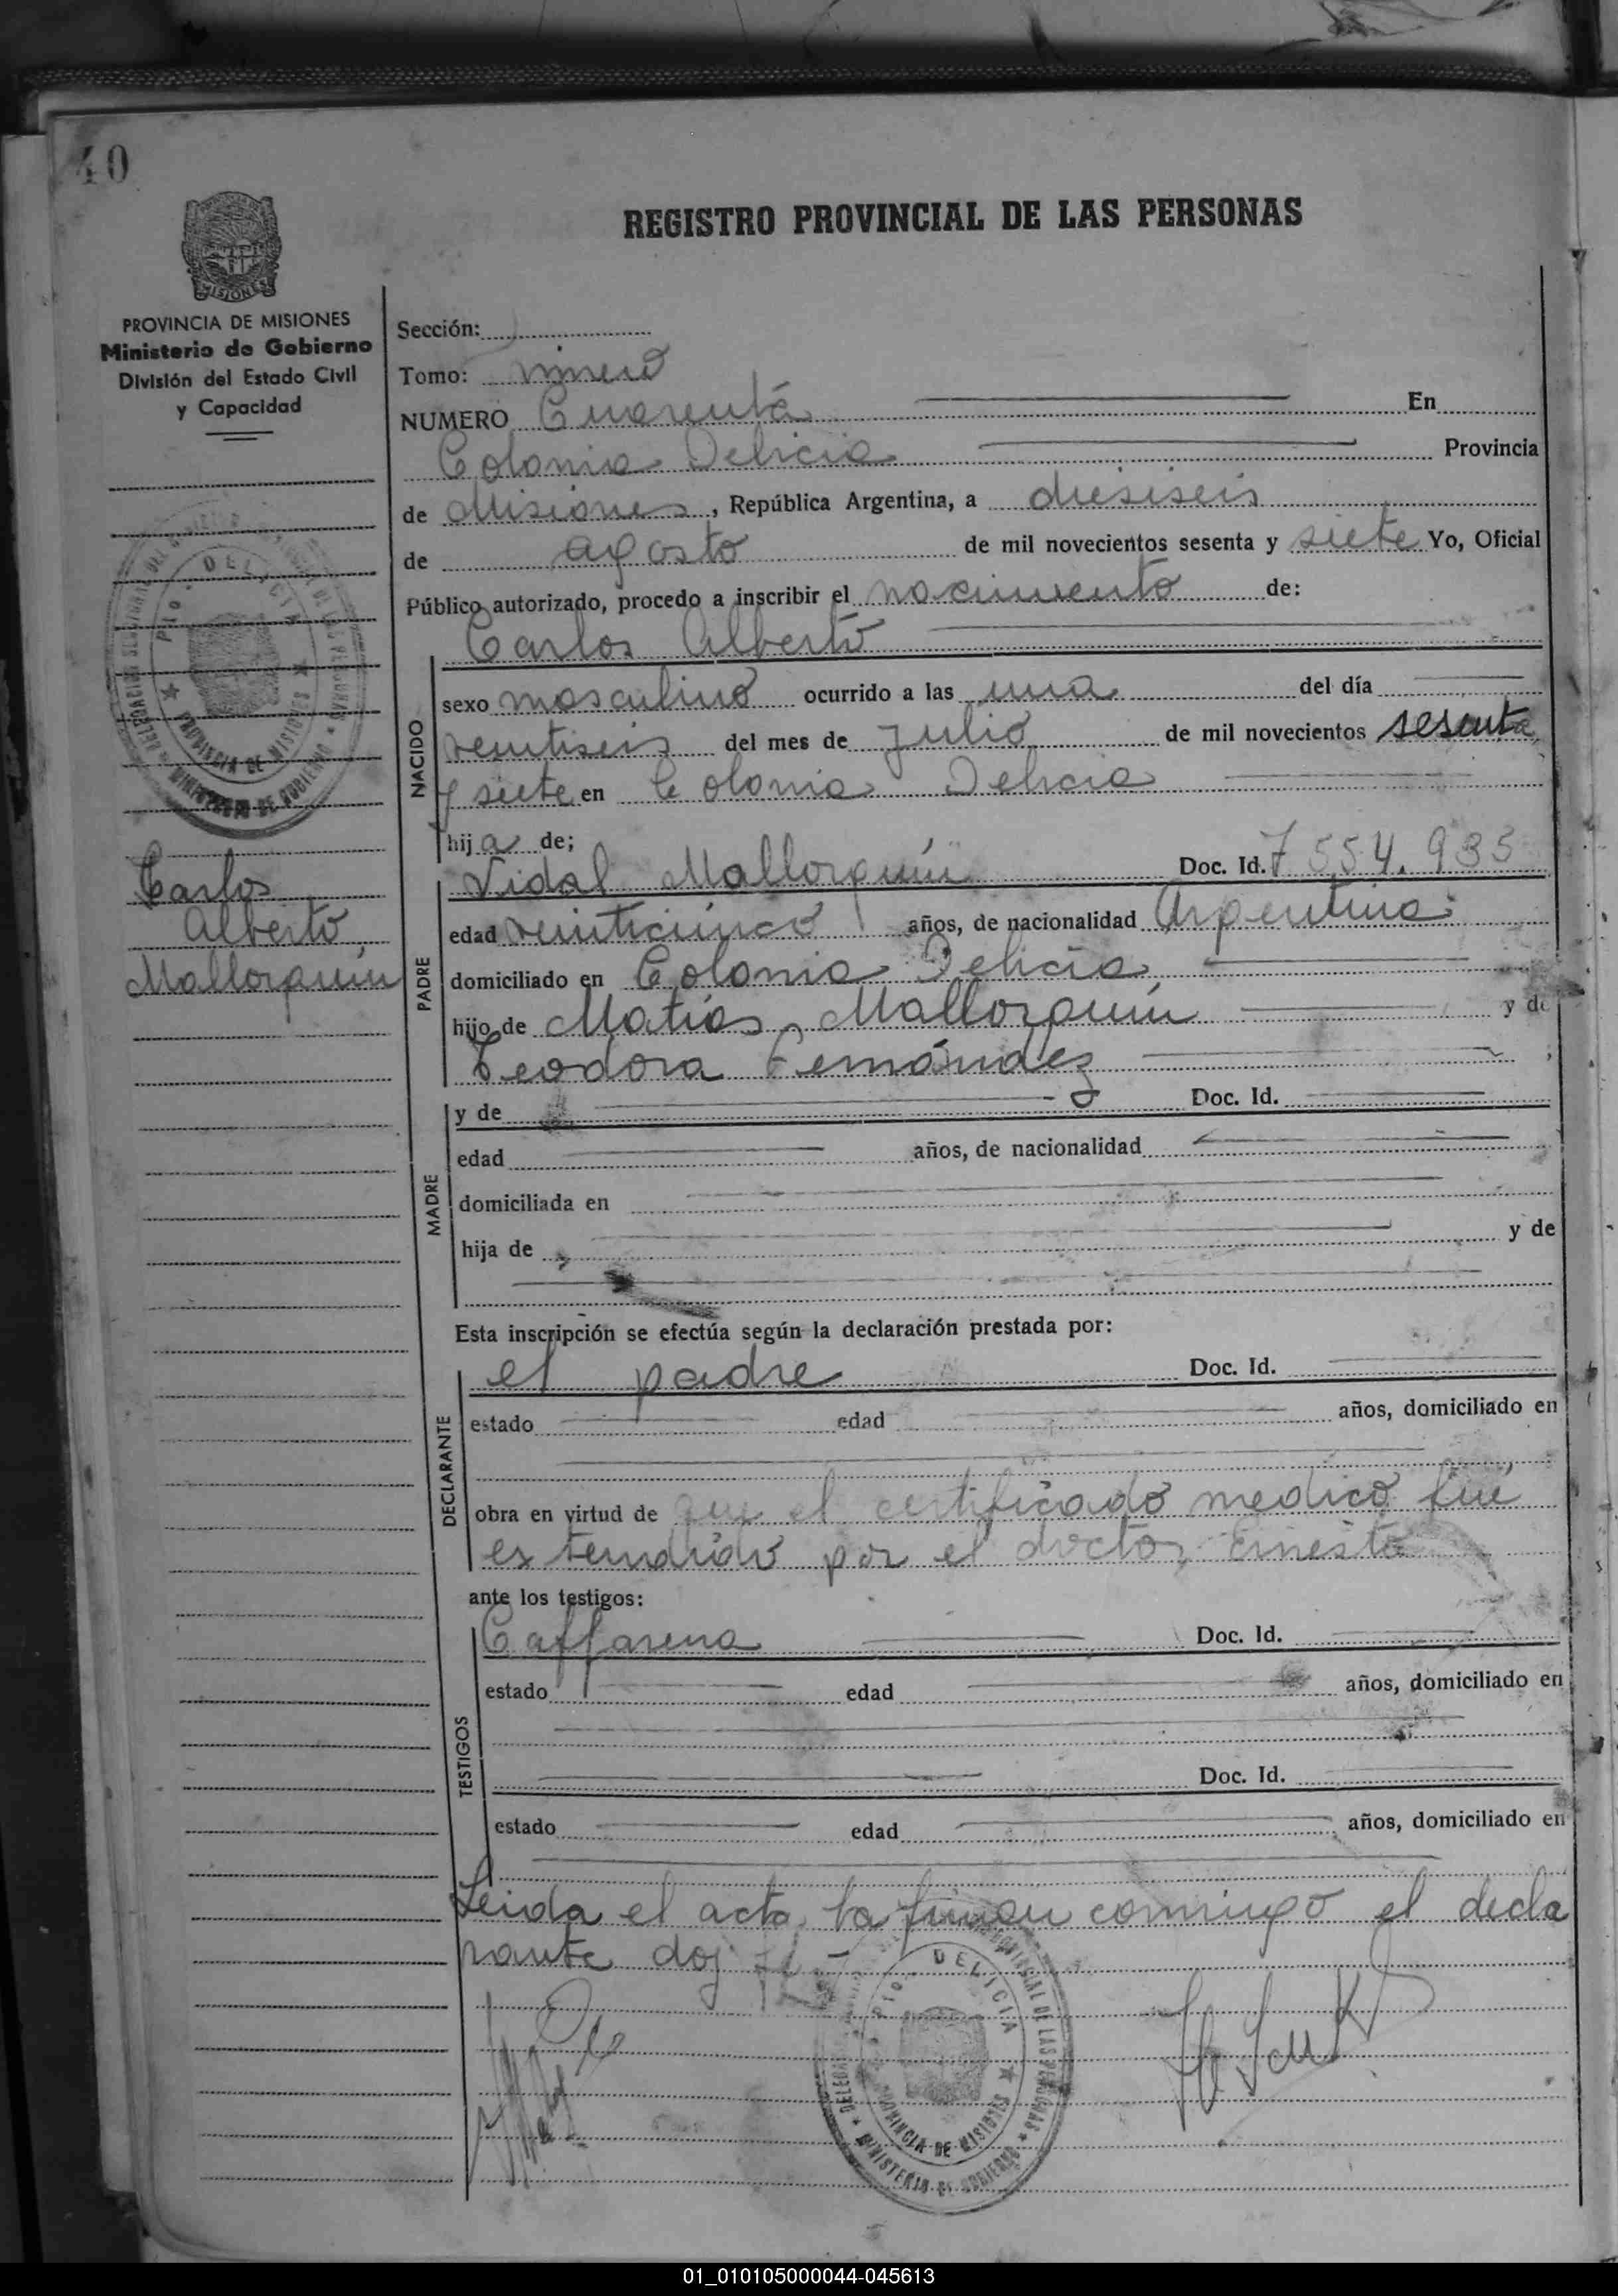 40
REGISTRO PROVINCIAL DE LAS PERSONAS
MISIONES
PROVINCIA DE MISIONES
Ministerio de Gobierno
División del Estado Civil
y Capacidad
Sección:
Tomo: rimero
NUMERO Cuarenta En
Colonia Delicia Provincia
de Misiones, República Argentina, a diesiseis
de agosto de mil novecientos sesenta y siete Yo, Oficial
Público autorizado, procedo a inscribir el nacimiento de:
Carlos Alberto
NACIDO
sexo masculino ocurrido a las una del día
veintiseis del mes de Julio de mil novecientos sesenta
y siete en Colonia Delicia
hija de;
Carlos
Alberto
Mallorquín
PADRE
Vidal Mallorquín Doc. Id. 7.554.935
edad veinticinco años, de nacionalidad Argentina
domiciliado en Colonia Delicia
hijo de Matías Mallorquín y de
Teodora Fernández
MADRE
y de Doc. Id.
edad años, de nacionalidad
domiciliada en
hija de y de
Esta inscripción se efectúa según la declaración prestada por:
DECLARANTE
el padre Doc. Id.
estado edad años, domiciliado en
obra en virtud de que el certificado medico fué
extendido por el doctor Ernesto
ante los testigos:
TESTIGOS
Caffarena Doc. Id.
estado edad años, domiciliado en
Doc. Id.
estado edad años, domiciliado en
Leida el acta la firman conmigo el decla
rante doy fé
DELICIA
PROVINCIA DE MISIONES
MINISTERIO DE GOBIERNO
01_010105000044-045613